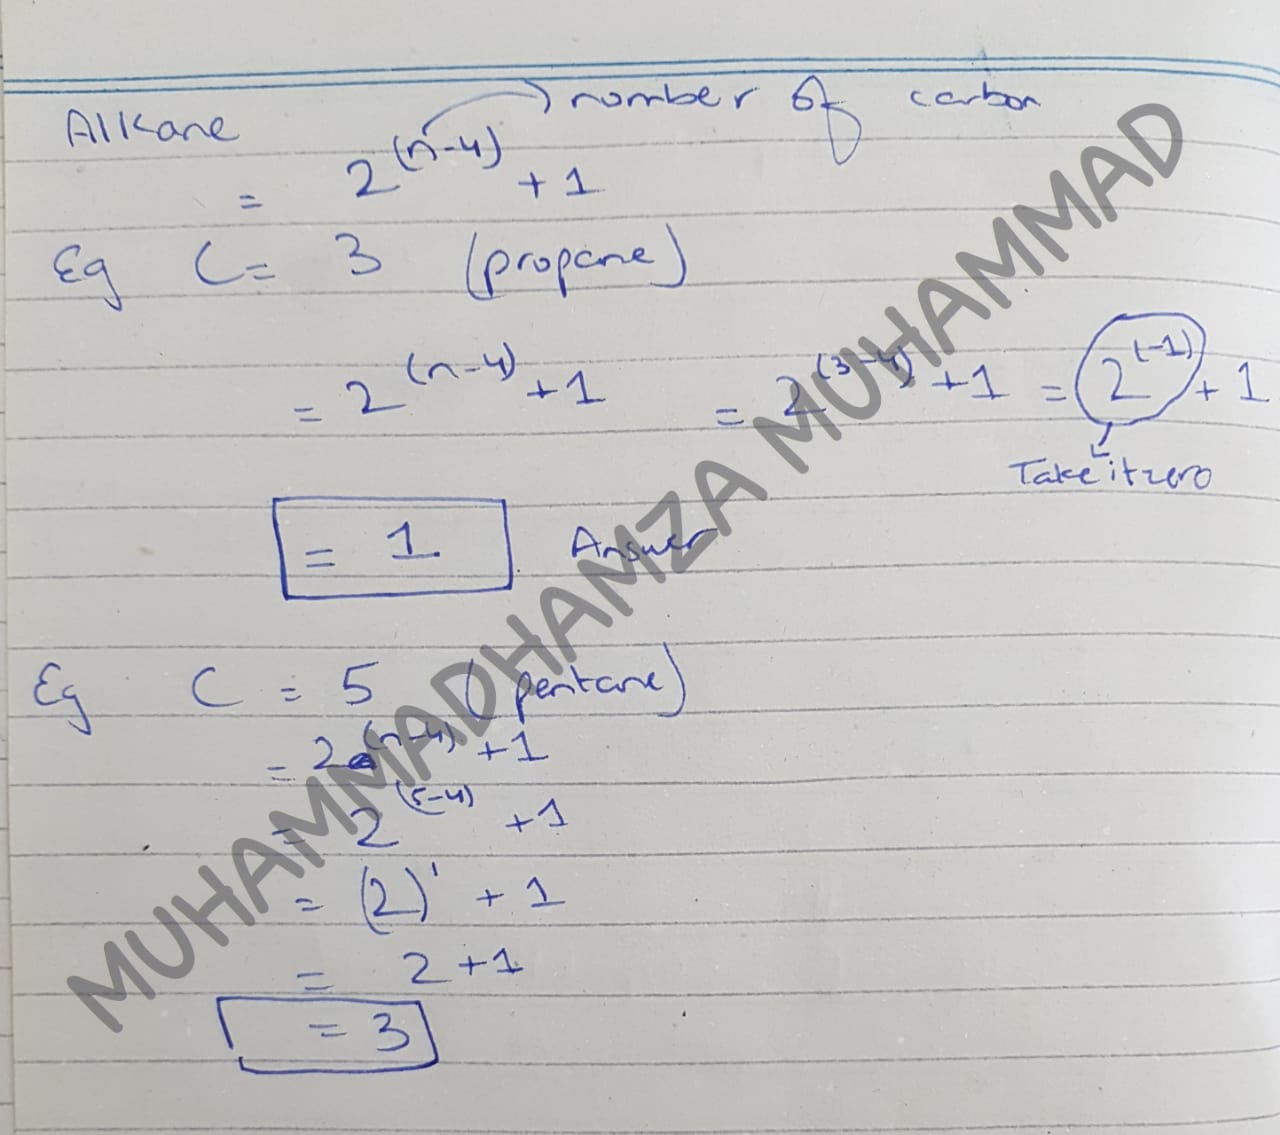 Alkane → number of carbon
= 2^(n-4) + 1
Eg C = 3 (propane)
= 2^(n-4) + 1 = 2^(3-4) + 1 = 2^(-1) + 1
Take it zero
= 1 Answer
Eg C = 5 (pentane)
= 2^(n-4) + 1
= 2^(5-4) + 1
= (2)^1 + 1
= 2 + 1
= 3
MUHAMMADHAMZA MUHAMMAD